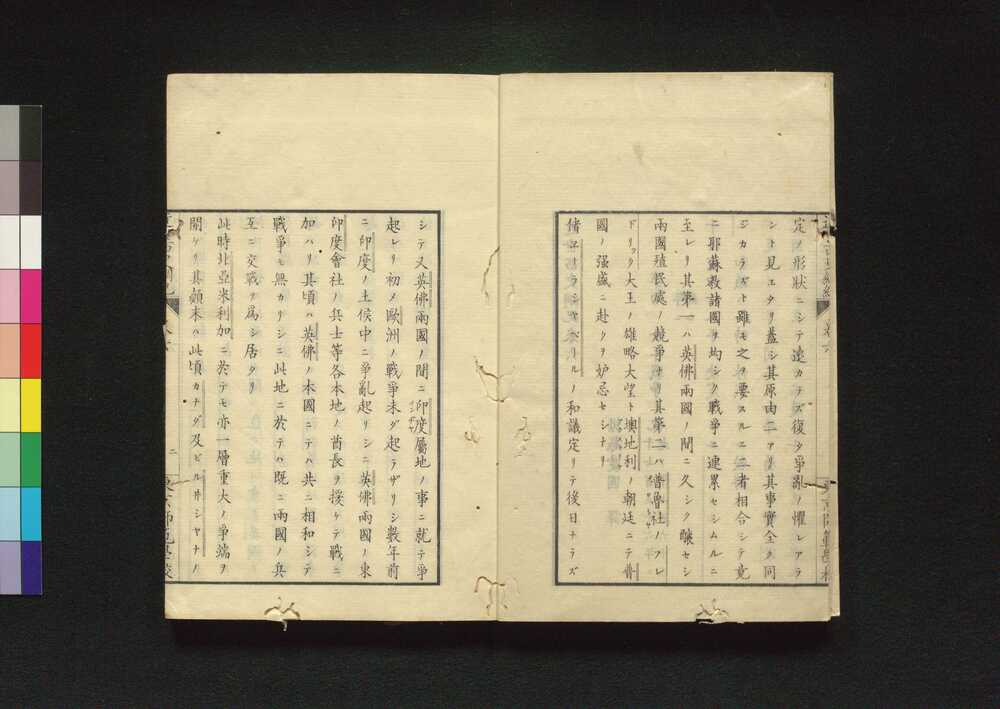 定ノ形狀ニシテ遠カラズ復タ爭亂ノ懼レアラ
ント見エタリ蓋シ其原由二アリ其事實全ク同
ジカラズト雖モ之ヲ要スルニ二者相合シテ竟
ニ耶蘇敎諸國ヲ均シク戰爭ニ連累セシムルニ
至レリ其第一ハ英佛兩國ノ間ニ久シク釀セシ
兩國殖民處ノ競爭ナリ其第二ハ普魯社ノフレ
ドリック大王ノ雄略大望ト墺地利ノ朝廷ニテ普
國ノ强盛ニ赴クヲ妒忌セシナリ
偖エーラシャペールノ和議定リテ後日ナラズ
シテ又英佛兩國ノ間ニ印度屬地ノ事ニ就テ爭
起レリ初メ歐洲ノ戰爭未ダ起ラザリシ數年前
ニ印度ノ土侯中ニ爭亂起リシニ英佛兩國ノ東
印度會社ノ兵士等各本地ノ酋長ヲ援ケテ戰ニ
加ハリ其頃ハ英佛ノ本國ニテハ共ニ相和シテ
戰爭モ無カリシニ此地ニ於テハ既ニ兩國ノ兵
互ニ交戰ヲ爲シ居タリ
此時北亞米利加ニ於テモ亦一層重大ノ爭端ヲ
開ケリ其顚末ハ此頃カナダ及ビルイシヤナノ
二